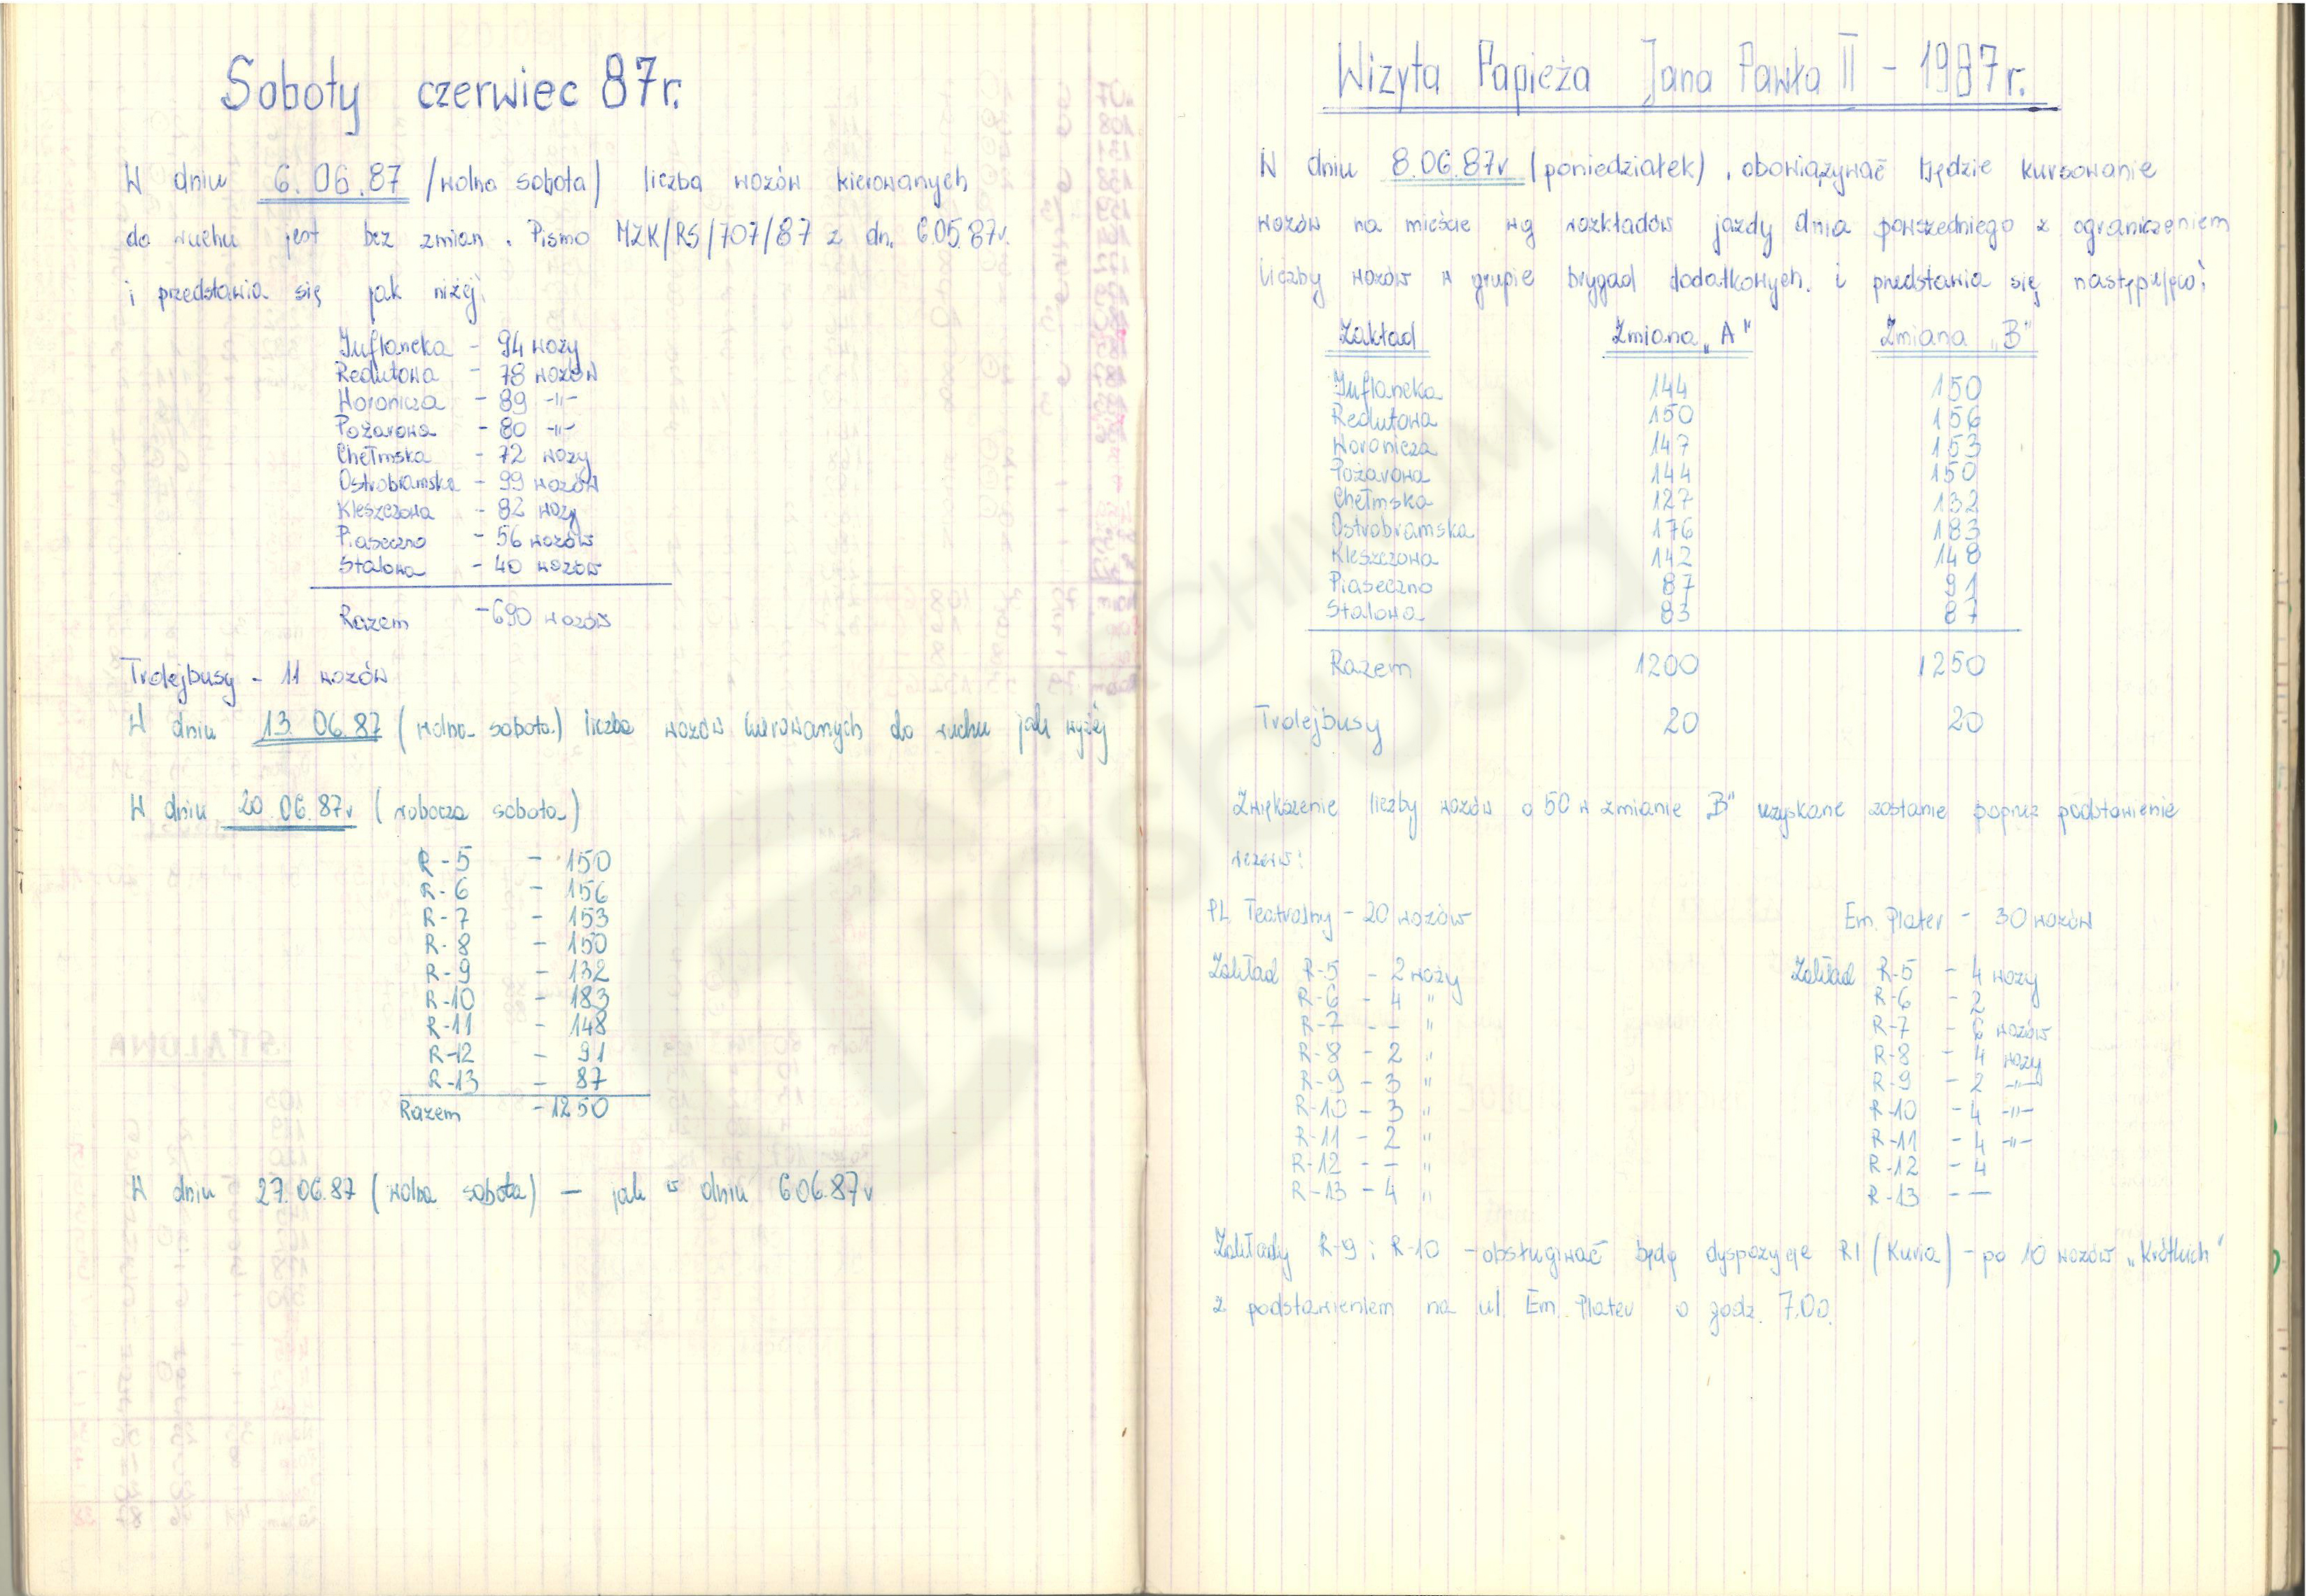 Soboty czerwiec 87r.
W dniu 6.06.87 /wolna sobota) liczba wozów kierowanych
do ruchu jest bez zmian. Pismo MZK/RS/707/87 z dn. 6.05.87r.
i przedstawia się jak niżej:
Inflancka - 94 wozy
Redutowa - 78 wozów
Woronicza - 89 -"-
Pożarowa - 80 -"-
Chełmska - 72 wozy
Ostrobramska - 99 wozów
Kleszczowa - 82 wozy
Piaseczno - 56 wozów
Stalowa - 40 wozów
Razem - 690 wozów
Trolejbusy - 11 wozów
W dniu 13.06.87 (wolna sobota) liczba wozów kierowanych do ruchu jak wyżej
W dniu 20.06.87r (robocza sobota)
R-5 - 150
R-6 - 156
R-7 - 153
R-8 - 150
R-9 - 132
R-10 - 183
R-11 - 148
R-12 - 91
R-13 - 87
Razem - 1250
W dniu 27.06.87 (wolna sobota) - jak w dniu 6.06.87r
Wizyta Papieża Jana Pawła II - 1987r.
W dniu 8.06.87r (poniedziałek), obowiązywać będzie kursowanie
wozów na mieście wg rozkładów jazdy dnia powszedniego z ograniczeniem
liczby wozów w grupie brygad dodatkowych. i przedstawia się następująco:
Zakład Zmiana „A" Zmiana „B"
Inflancka 144 150
Redutowa 150 156
Woronicza 147 153
Pożarowa 144 150
Chełmska 127 132
Ostrobramska 176 183
Kleszczowa 142 148
Piaseczno 87 91
Stalowa 83 87
Razem 1200 1250
Trolejbusy 20 20
Zwiększenie liczby wozów o 50 w zmianie „B" uzyskane zostanie poprzez podstawienie
rezerw:
Pl. Teatralny - 20 wozów Em. Plater - 30 wozów
Zakład R-5 - 2 wozy Zakład R-5 - 4 wozy
R-6 - 4 " R-6 - 2
R-7 - - " R-7 - 6 wozów
R-8 - 2 " R-8 - 4 wozy
R-9 - 3 " R-9 - 2 -"-
R-10 - 3 " R-10 - 4 -"-
R-11 - 2 " R-11 - 4 -"-
R-12 - - " R-12 - 4
R-13 - 4 " R-13 - -
Zakłady R-9 i R-10 - obsługiwać będą dyspozycje R1 (Kuria) - po 10 wozów „krótkich"
z podstawieniem na ul. Em. Plater o godz. 7.00.